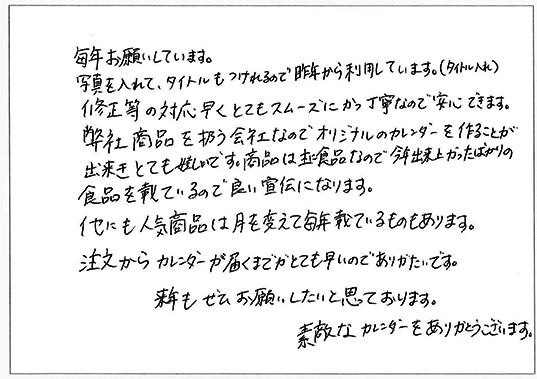 毎年お願いしています。
写真を入れて、タイトルもつけれるので昨年から利用しています。(タイトル入れ)
修正等の対応早くとてもスムーズにかつ丁寧なので安心できます。
弊社商品を扱う会社なのでオリジナルのカレンダーを作ることが
出来きとても嬉しいです。商品は主に食品なので今年出来上がったばかりの
食品を載ているので良い宣伝になります。
他にも人気商品は月を変えて毎年載ているものもあります。
注文からカレンダーが届くまでがとても早いのでありがたいです。
来年もぜひお願いしたいと思っております。
素敵なカレンダーをありがとうございます。